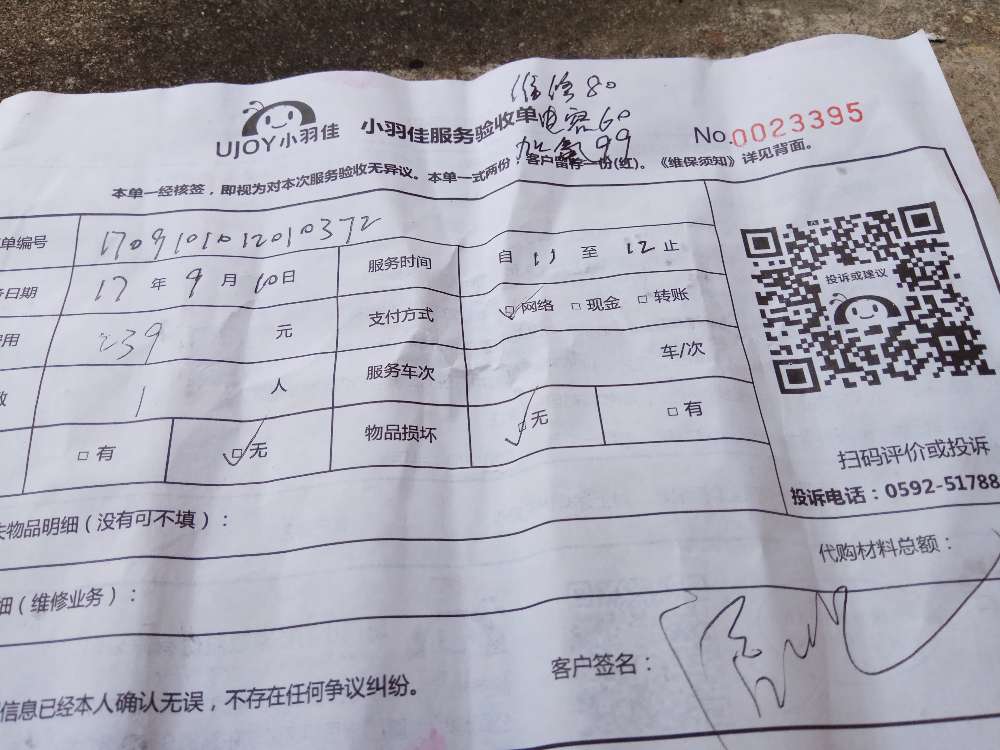 维修80
电容60
加氟99
UJOY小羽佳 小羽佳服务验收单 No.0023395
本单一经核签，即视为对本次服务验收无异议。本单一式两份 客户留存一份(红)。《维保须知》详见背面。
单编号 1709101012010372 服务时间 自 11 至 12 止
日期 17年9月10日
用 239 元 支付方式 网络 现金 转账
数 1 人 服务车次 车/次
有 无 物品损坏 无 有
投诉或建议
扫码评价或投诉
投诉电话：0592-51788
物品明细（没有可不填）：
代购材料总额：
细（维修业务）：
客户签名：
信息已经本人确认无误，不存在任何争议纠纷。